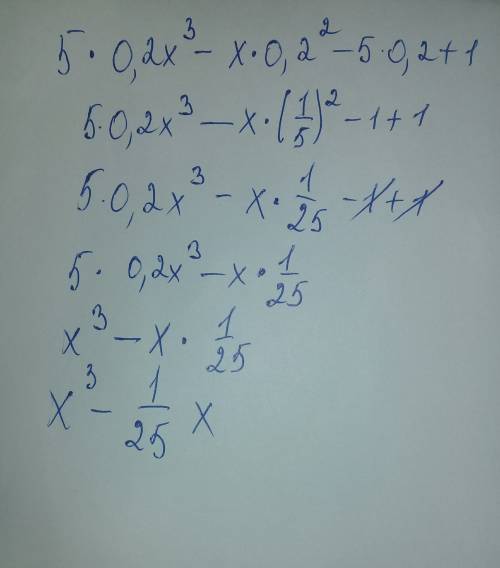 5 · 0,2x³ − x · 0,2² − 5 · 0,2 + 1
5 · 0,2x³ − x · (1/5)² − 1 + 1
5 · 0,2x³ − x · 1/25 − 1 + 1
5 · 0,2x³ − x · 1/25
x³ − x · 1/25
x³ − 1/25 x